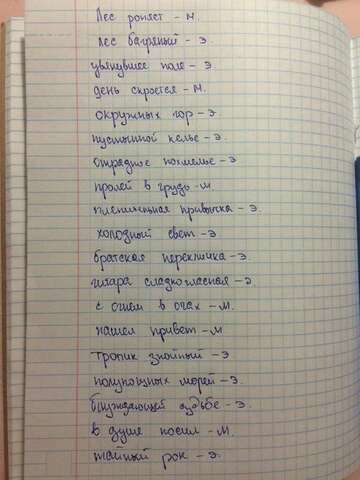 Лес роняет - м.
Лес багряный - э.
увянувшее поле - э
день скроется - м.
окружных гор - э
пустынной келье - э.
отрадное похмелье - э
пролей в грудь - м.
пленительная привычка - э.
холодный свет - э
братская перекличка - э.
гитара сладкогласная - э
с огнем в очах - м.
нашел привет - м
тропик знойный - э
полунощных морей - э.
блуждающей судьбе - э.
в душе носил - м.
тайный рок - э.